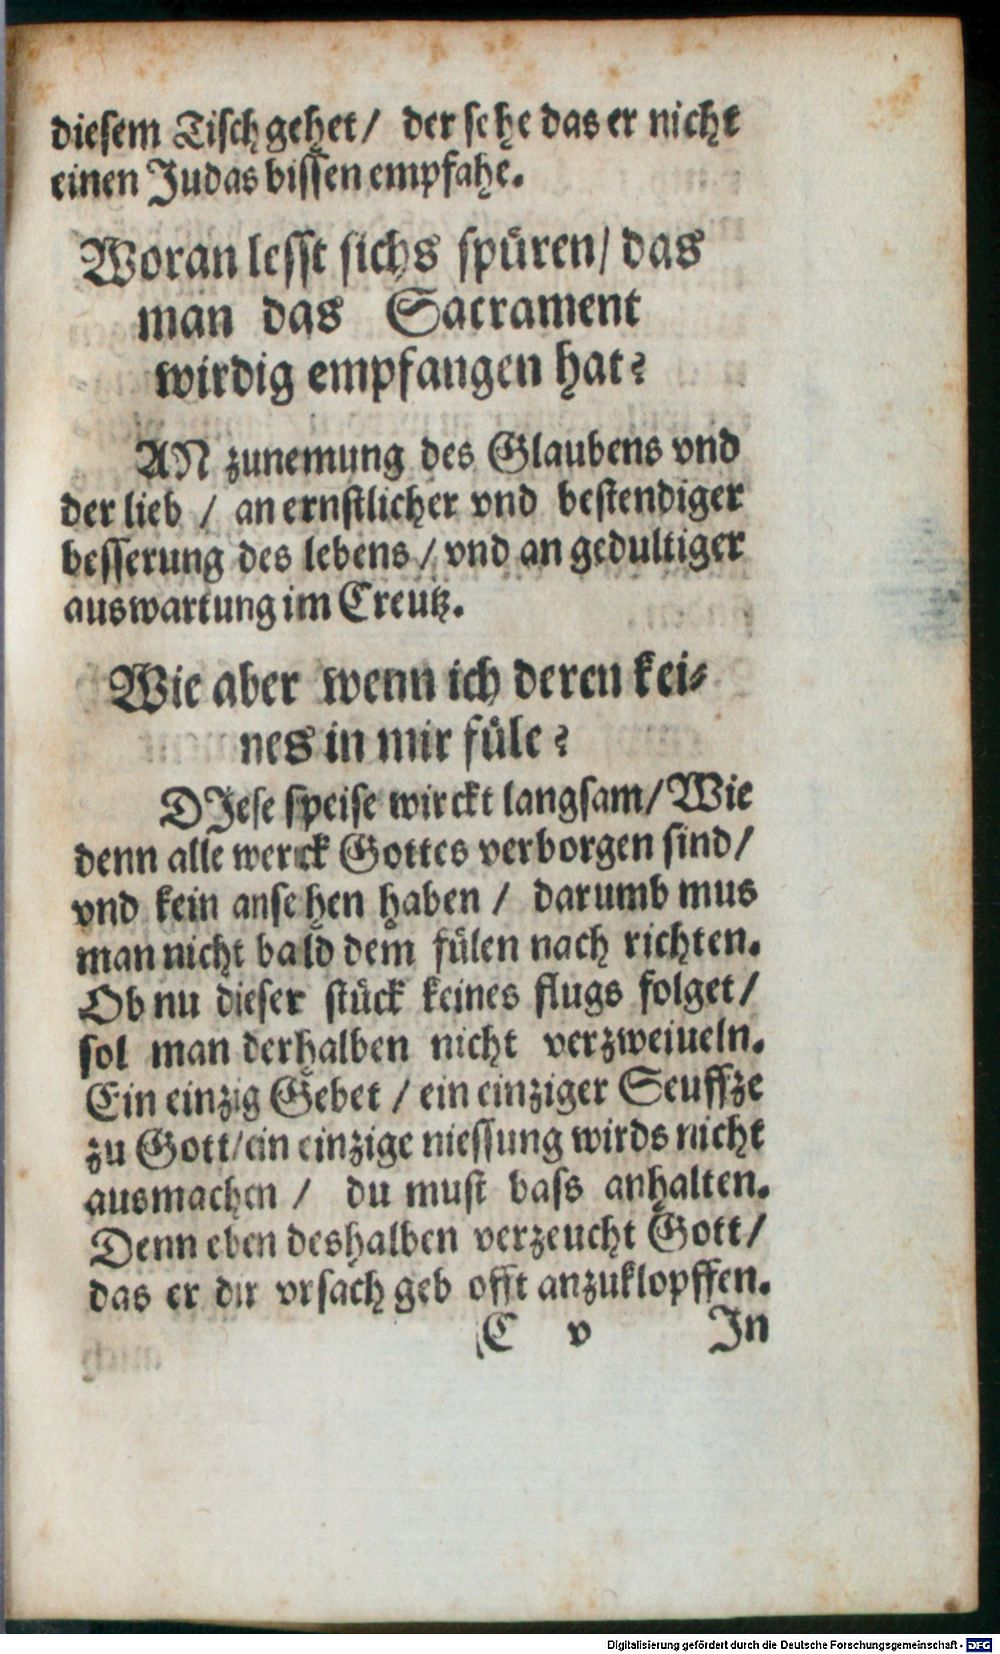 diesem Tisch gehet/ der sehe das er nicht
einen Judas bissen empfahe.
Woran lesst sichs spüren/ das
man das Sacrament
wirdig empfangen hat?
AN zunemung des Glaubens vnd
der lieb / an ernstlicher vnd bestendiger
besserung des lebens / vnd an gedultiger
auswartung im Creutz.
Wie aber wenn ich deren kei-
nes in mir füle?
DJese speise wirckt langsam/ Wie
denn alle werck Gottes verborgen sind/
vnd kein ansehen haben / darumb mus
man nicht bald dem fülen nach richten.
Ob nu dieser stück keines flugs folget/
sol man derhalben nicht verzweiueln.
Ein einzig Gebet / ein einziger Seuffze
zu Gott/ ein einzige niessung wirds nicht
ausmachen / du must bass anhalten.
Denn eben deshalben verzeucht Gott/
das er dir vrsach geb offt anzuklopffen.
C v Jn
Digitalisierung gefördert durch die Deutsche Forschungsgemeinschaft - DFG